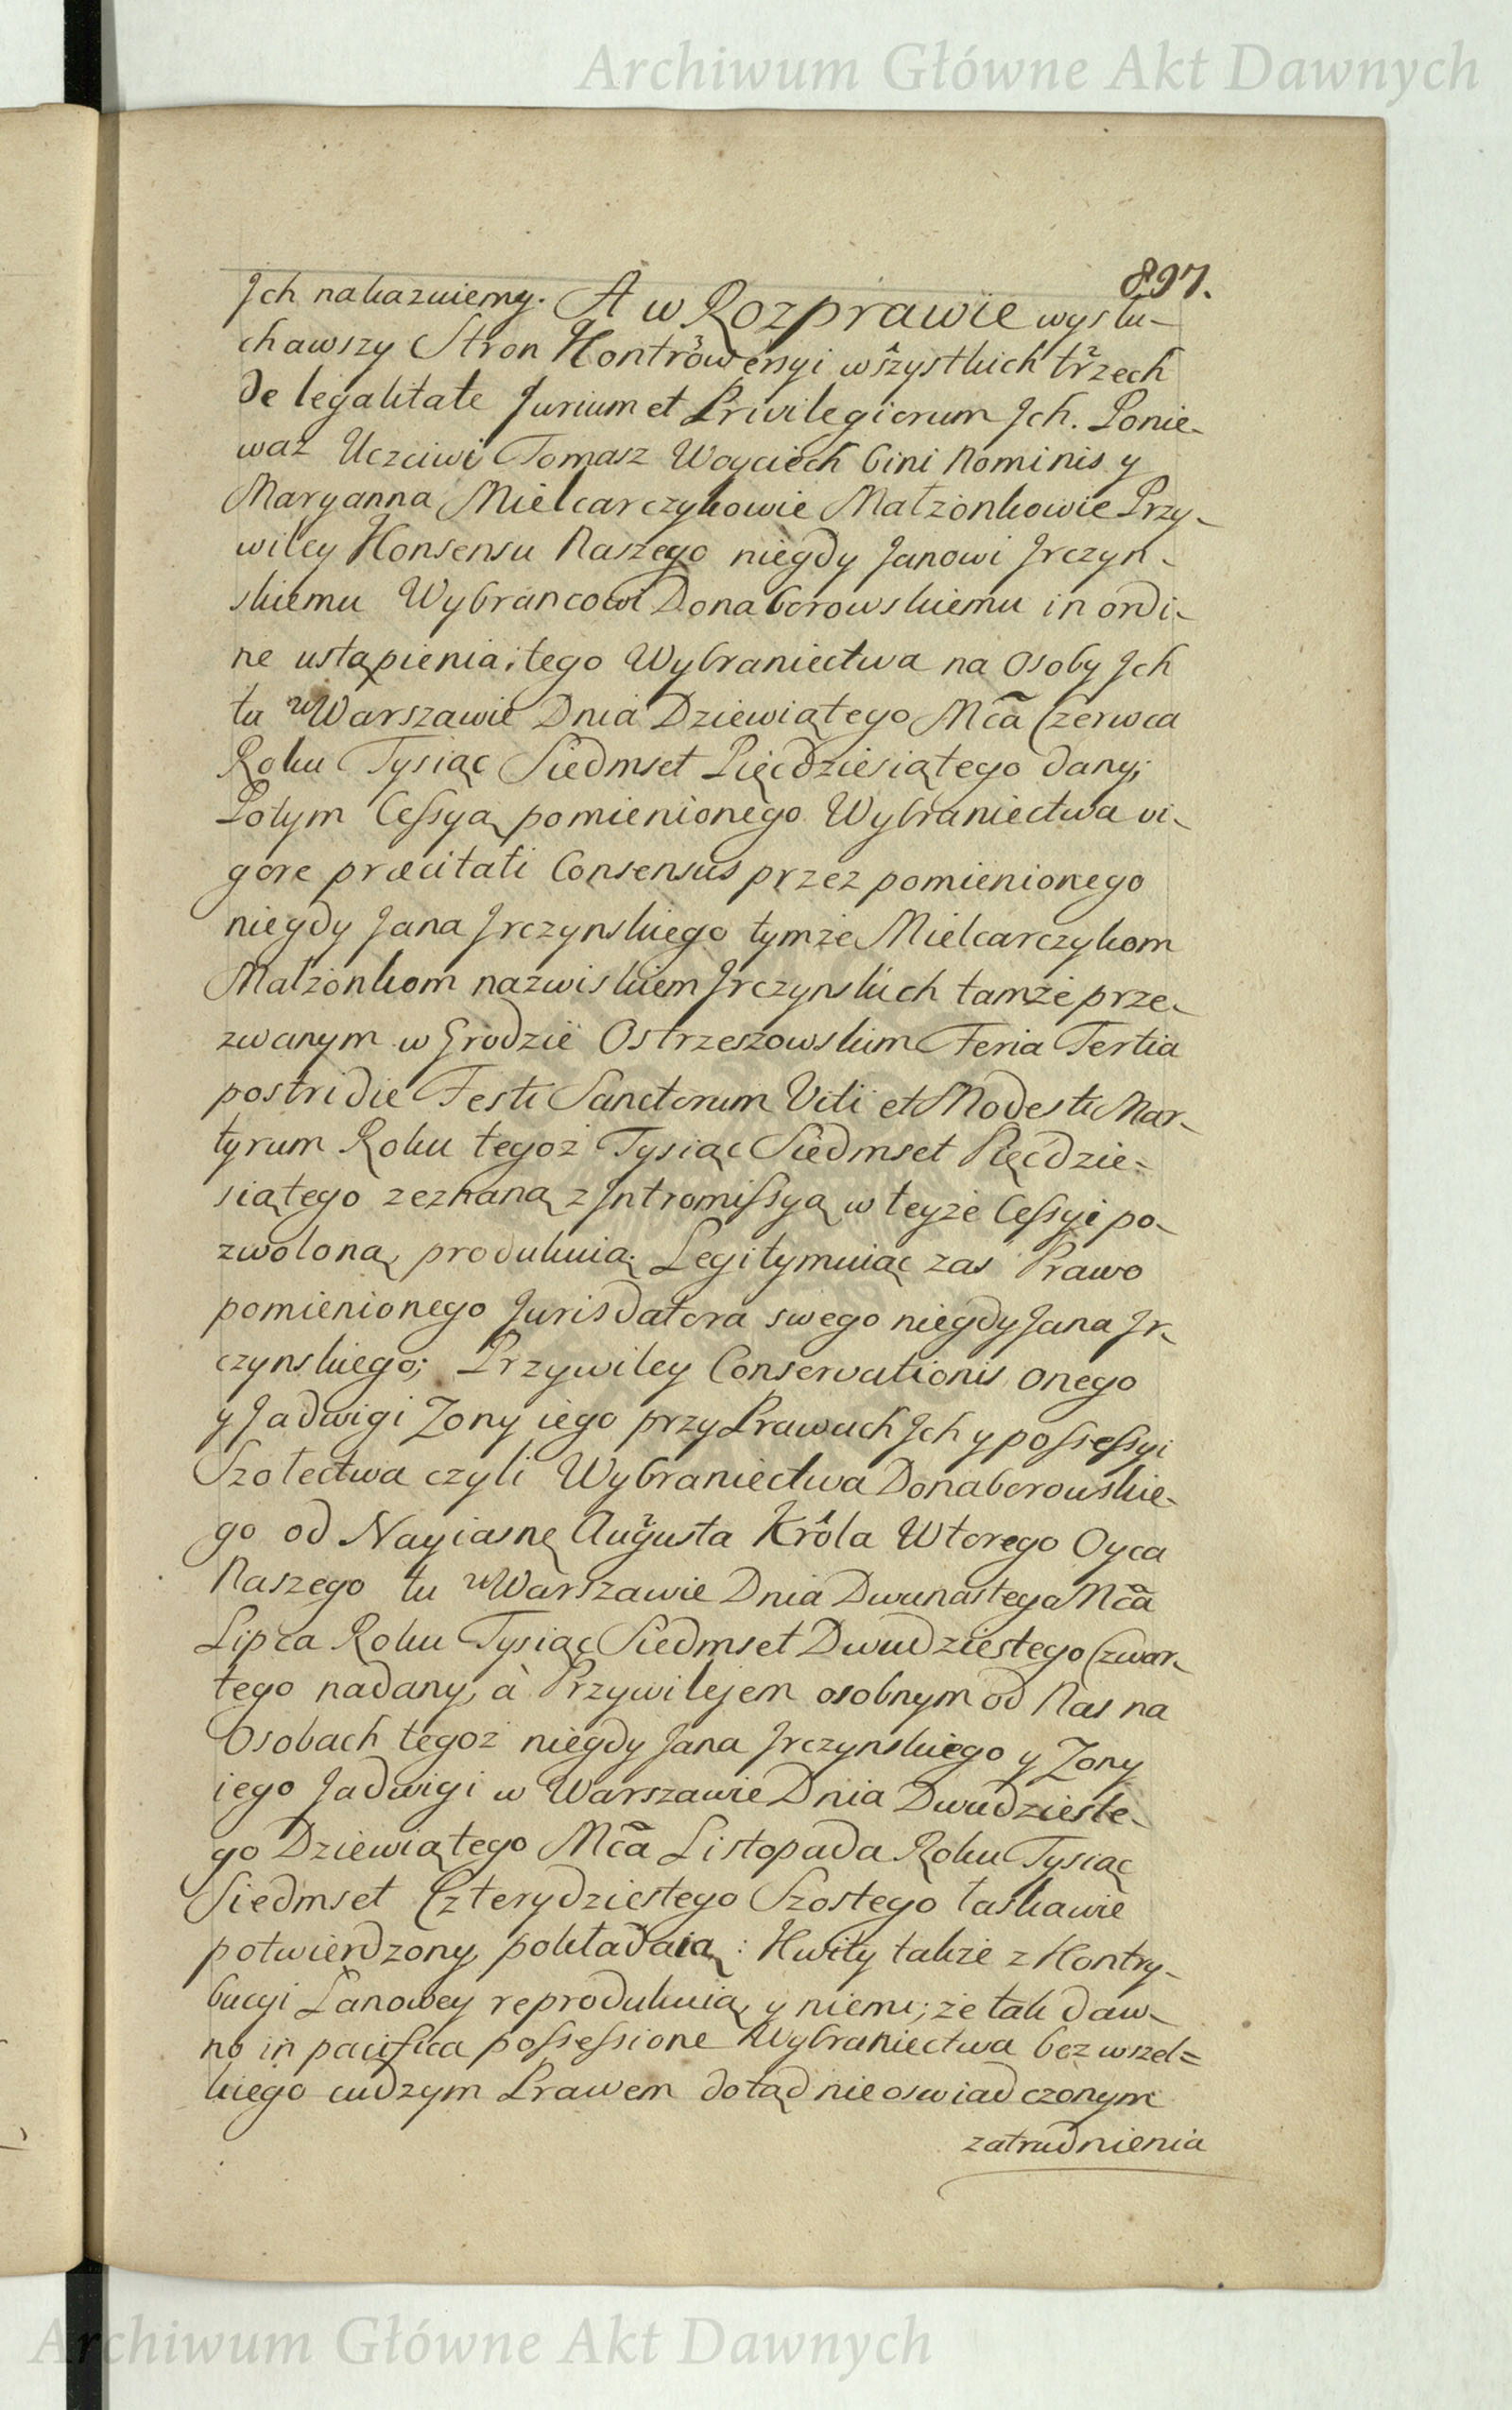 Archiwum Główne Akt Dawnych
897.
Jch nakazuiemy. A w Rozprawie wysłu-
chawszy Stron Kontrowersyi wszystkich trzech
de legalitate Jurium et Privilegiorum Jch. Ponie-
waż Uczciwi Tomasz Woyciech bini Nominis y
Maryanna Mielcarczykowie Małżonkowie Przy-
wiley Konsensu Naszego niegdy Janowi Jrczyn-
skiemu Wybrancowi Donaborowskiemu in ordi-
ne ustąpienia tego Wybraniectwa na Osoby Jch
tu w Warszawie Dnia Dziewiątego Mca Czerwca
Roku Tysiąc Siedmset Pięćdziesiątego dany;
Potym Cessyą pomienionego Wybraniectwa vi-
gore præcitati Consensus przez pomienionego
niegdy Jana Jrczynskiego tymże Mielcarczykom
Małżonkom nazwiskiem Jrczynskich tamże prze-
zwanym w Grodzie Ostrzeszowskim Feria Tertia
postridie Festi Sanctorum Viti et Modesti Mar-
tyrum Roku tegoż Tysiąc Siedmset Pięćdzie=
siątego zeznaną z Jntromissyą w teyże Cessyi po-
zwoloną, produkuią. Legitymuiąc zas Prawo
pomienionego Jurisdatora swego niegdy Jana Jr-
czynskiego; Przywiley Conservationis onego
y Jadwigi Zony iego przy Prawach Jch y possessyi
Szołectwa czyli Wybraniectwa Donaborowskie-
go od Nayiasnę Augusta Krôla Wtorego Oyca
Naszego tu w Warszawie Dnia Dwunastego Mca
Lipca Roku Tysiąc Siedmset Dwudziestego Czwar-
tego nadany, à Przywilejem osobnym od Nas na
Osobach tegoż niegdy Jana Jrczynskiego y Zony
iego Jadwigi w Warszawie Dnia Dwudzieste-
go Dziewiątego Mca Listopada Roku Tysiąc
Siedmset Czterydziestego Szostego łaskawie
potwierdzony, pokładaią: Kwity także z Kontry-
bucyi Łanowey reprodukuią, y niemi; że tak daw-
no in pacifica possessione Wybraniectwa bez wszel=
kiego cudzym Prawem dotąd nie oswiadczonym
zatrudnienia
Archiwum Główne Akt Dawnych